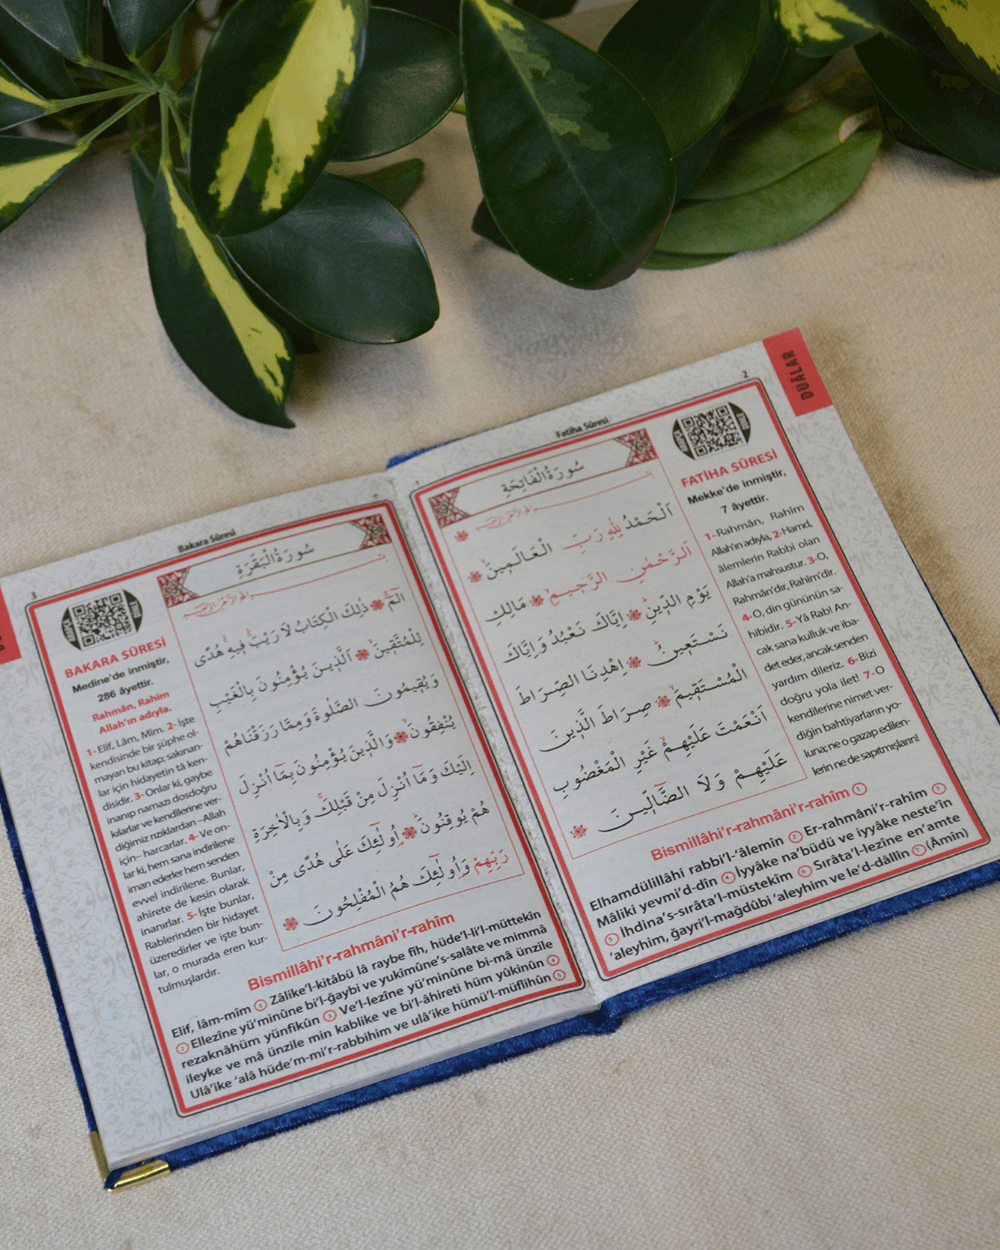 2
DUÂLAR
Fatiha Sûresi
سُورَةُ الْفَاتِحَةِ
اَلْحَمْدُ لِلّٰهِ رَبِّ الْعَالَمِينَ
اَلرَّحْمٰنِ الرَّحِيمِ مَالِكِ
يَوْمِ الدِّينِ اِيَّاكَ نَعْبُدُ وَاِيَّاكَ
نَسْتَعِينُ اِهْدِنَا الصِّرَاطَ
الْمُسْتَقِيمَ صِرَاطَ الَّذِينَ
اَنْعَمْتَ عَلَيْهِمْ غَيْرِ الْمَغْضُوبِ
عَلَيْهِمْ وَلَا الضَّٓالِّينَ
FATİHA SÛRESİ
Mekke'de inmiştir,
7 âyettir.
1- Rahmân, Rahîm
Allah'ın adıyla, 2- Hamd,
âlemlerin Rabbi olan
Allah'a mahsustur. 3- O,
Rahmân'dır, Rahîm'dir.
4- O, din gününün sa-
hibidir. 5- Yâ Rab! An-
cak sana kulluk ve iba-
det eder, ancak senden
yardım dileriz. 6- Bizi
doğru yola ilet! 7- O
kendilerine nimet ver-
diğin bahtiyarların yo-
luna; ne o gazap edilen-
lerin ne de sapıtmışların!
Bismillâhi'r-rahmâni'r-rahîm 1
Elhamdülillâhi rabbi'l-'âlemîn 2 Er-rahmâni'r-rahîm 3
Mâliki yevmi'd-dîn 4 İyyâke na'büdü ve iyyâke neste'în
5 İhdina's-sırâta'l-müstekîm 6 Sırâta'l-lezîne en'amte
'aleyhim, ğayri'l-mağdûbi 'aleyhim ve le'd-dâllîn 7 (Âmîn)
3
Bakara Sûresi
سُورَةُ الْبَقَرَةِ
الٓمٓ ذٰلِكَ الْكِتَابُ لَا رَيْبَ فِيهِ هُدًى
لِلْمُتَّقِينَ اَلَّذِينَ يُؤْمِنُونَ بِالْغَيْبِ
وَيُقِيمُونَ الصَّلٰوةَ وَمِمَّا رَزَقْنَاهُمْ
يُنْفِقُونَ وَالَّذِينَ يُؤْمِنُونَ بِمَٓا اُنْزِلَ
اِلَيْكَ وَمَٓا اُنْزِلَ مِنْ قَبْلِكَ وَبِالْاٰخِرَةِ
هُمْ يُوقِنُونَ اُو۬لٰٓئِكَ عَلٰى هُدًى مِنْ
رَبِّهِمْ وَاُو۬لٰٓئِكَ هُمُ الْمُفْلِحُونَ
BAKARA SÛRESİ
Medine'de inmiştir,
286 âyettir.
Rahmân, Rahîm
Allah'ın adıyla.
1- Elif, Lâm, Mîm. 2- İşte
kendisinde bir şüphe ol-
mayan bu kitap; sakınan-
lar için hidayetin tâ ken-
disidir. 3- Onlar ki, gaybe
inanıp namazı dosdoğru
kılarlar ve kendilerine ver-
diğimiz rızıklardan –Allah
için– harcarlar. 4- Ve on-
lar ki, hem sana indirilene
iman ederler hem senden
evvel indirilene. Bunlar,
ahirete de kesin olarak
inanırlar. 5- İşte bunlar,
Rablerinden bir hidayet
üzeredirler ve işte bun-
lar, o murada eren kur-
tulmuşlardır.
Bismillâhi'r-rahmâni'r-rahîm
Elif, lâm-mîm 1 Zâlike'l-kitâbü lâ raybe fîh, hüde'l-li'l-müttekîn
2 Ellezîne yü'minûne bi'l-ğaybi ve yukîmûne's-salâte ve mimmâ
rezaknâhüm yünfikûn 3 Ve'l-lezîne yü'minûne bi-mâ ünzile
ileyke ve mâ ünzile min kablike ve bi'l-âhireti hüm yûkinûn 4
Ulâ'ike 'alâ hüde'm-mi'r-rabbihim ve ulâ'ike hümü'l-müflihûn 5